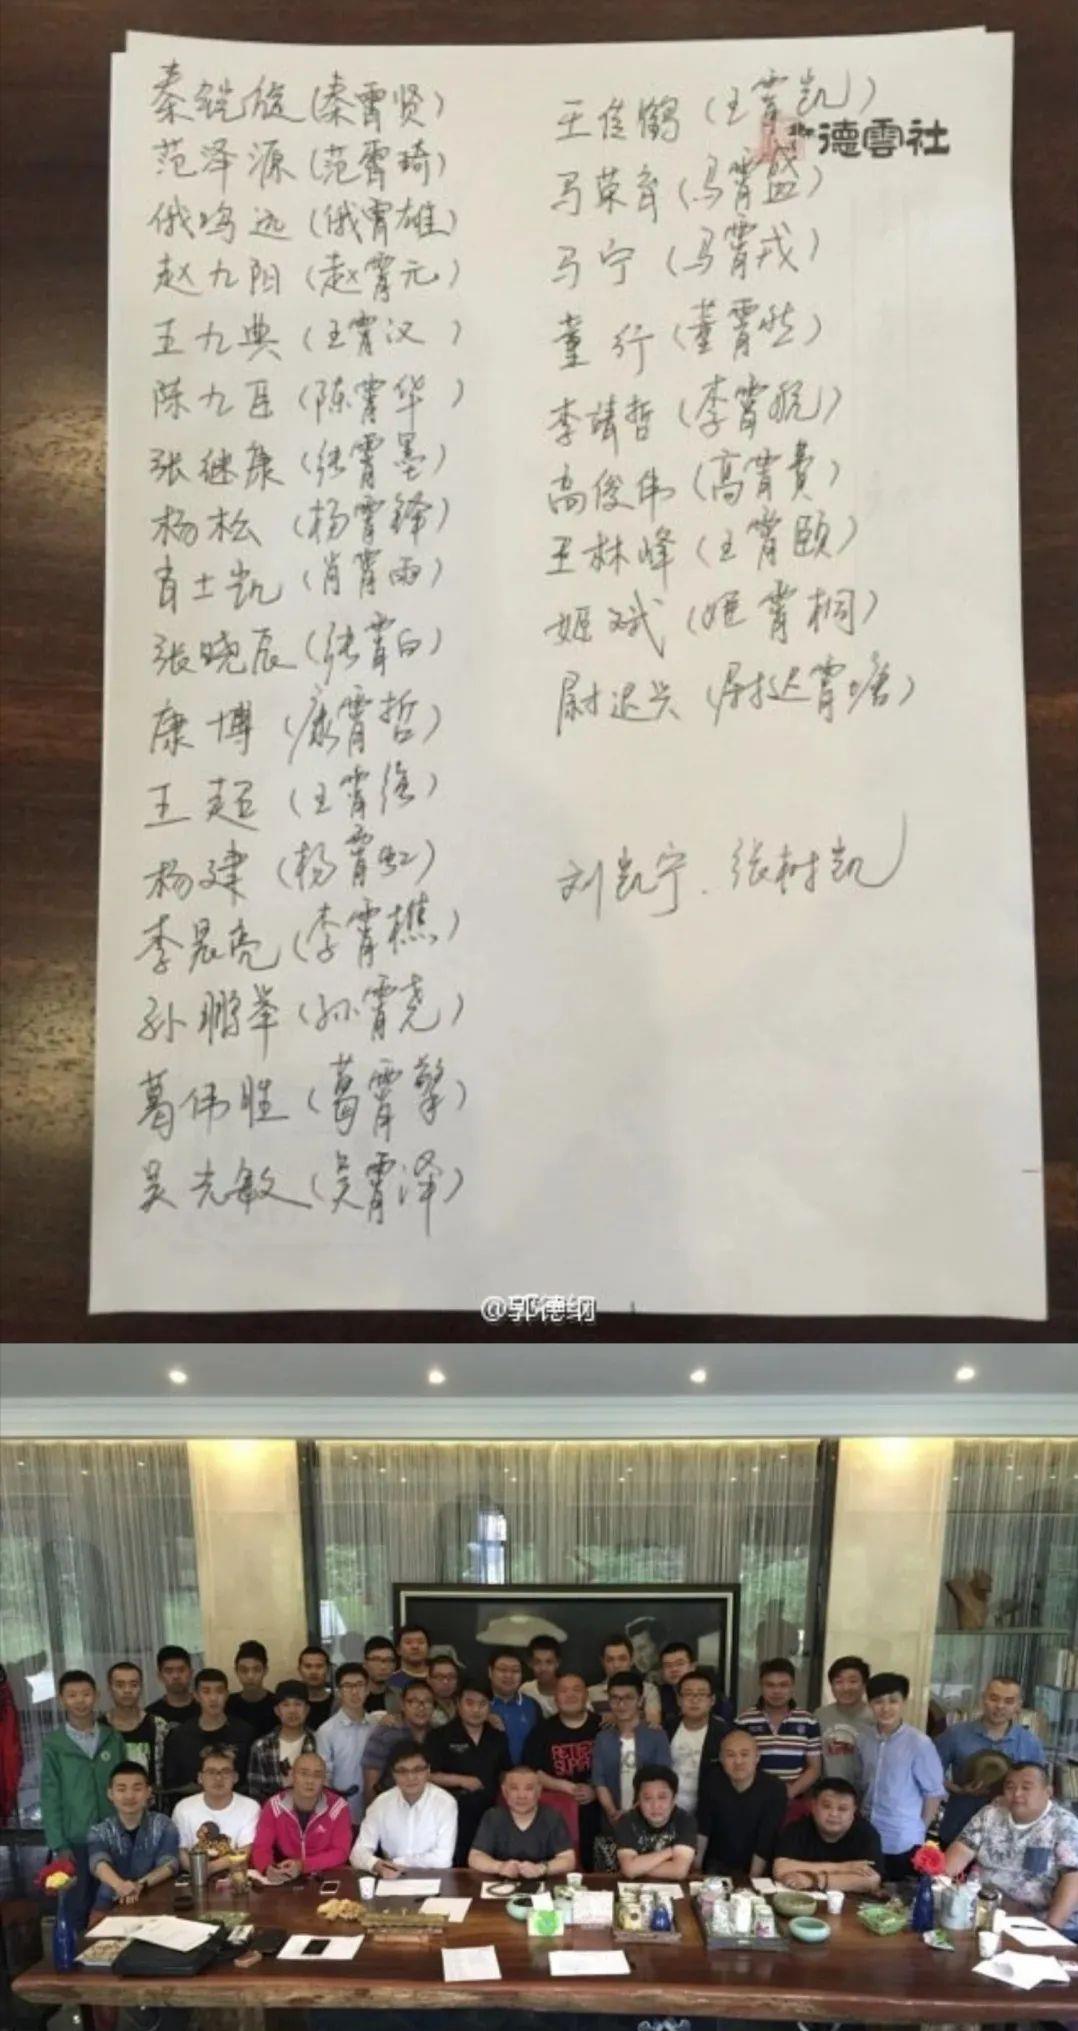 秦凯旋(秦霄贤)
范泽源(范霄琦)
俄鸣远(俄霄雄)
赵九阳(赵霄元)
王九典(王霄汉)
陈九臣(陈霄华)
张继康(张霄墨)
杨松(杨霄锋)
肖士凯(肖霄雨)
张晓辰(张霄白)
康博(康霄哲)
王超(王霄强)
杨建(杨霄虹)
李晨亮(李霄樵)
孙鹏举(孙霄尧)
葛伟胜(葛霄擎)
吴光敏(吴霄泽)
王佳鹤(王霄凯)
德雲社
马荣(马霄盛)
马宁(马霄戎)
董行(董霄然)
李靖哲(李霄航)
高俊伟(高霄贵)
王林峰(王霄颐)
姬斌(姬霄桐)
尉迟兴(尉迟霄塘)
刘凯宁、张树凯
@郭德纲